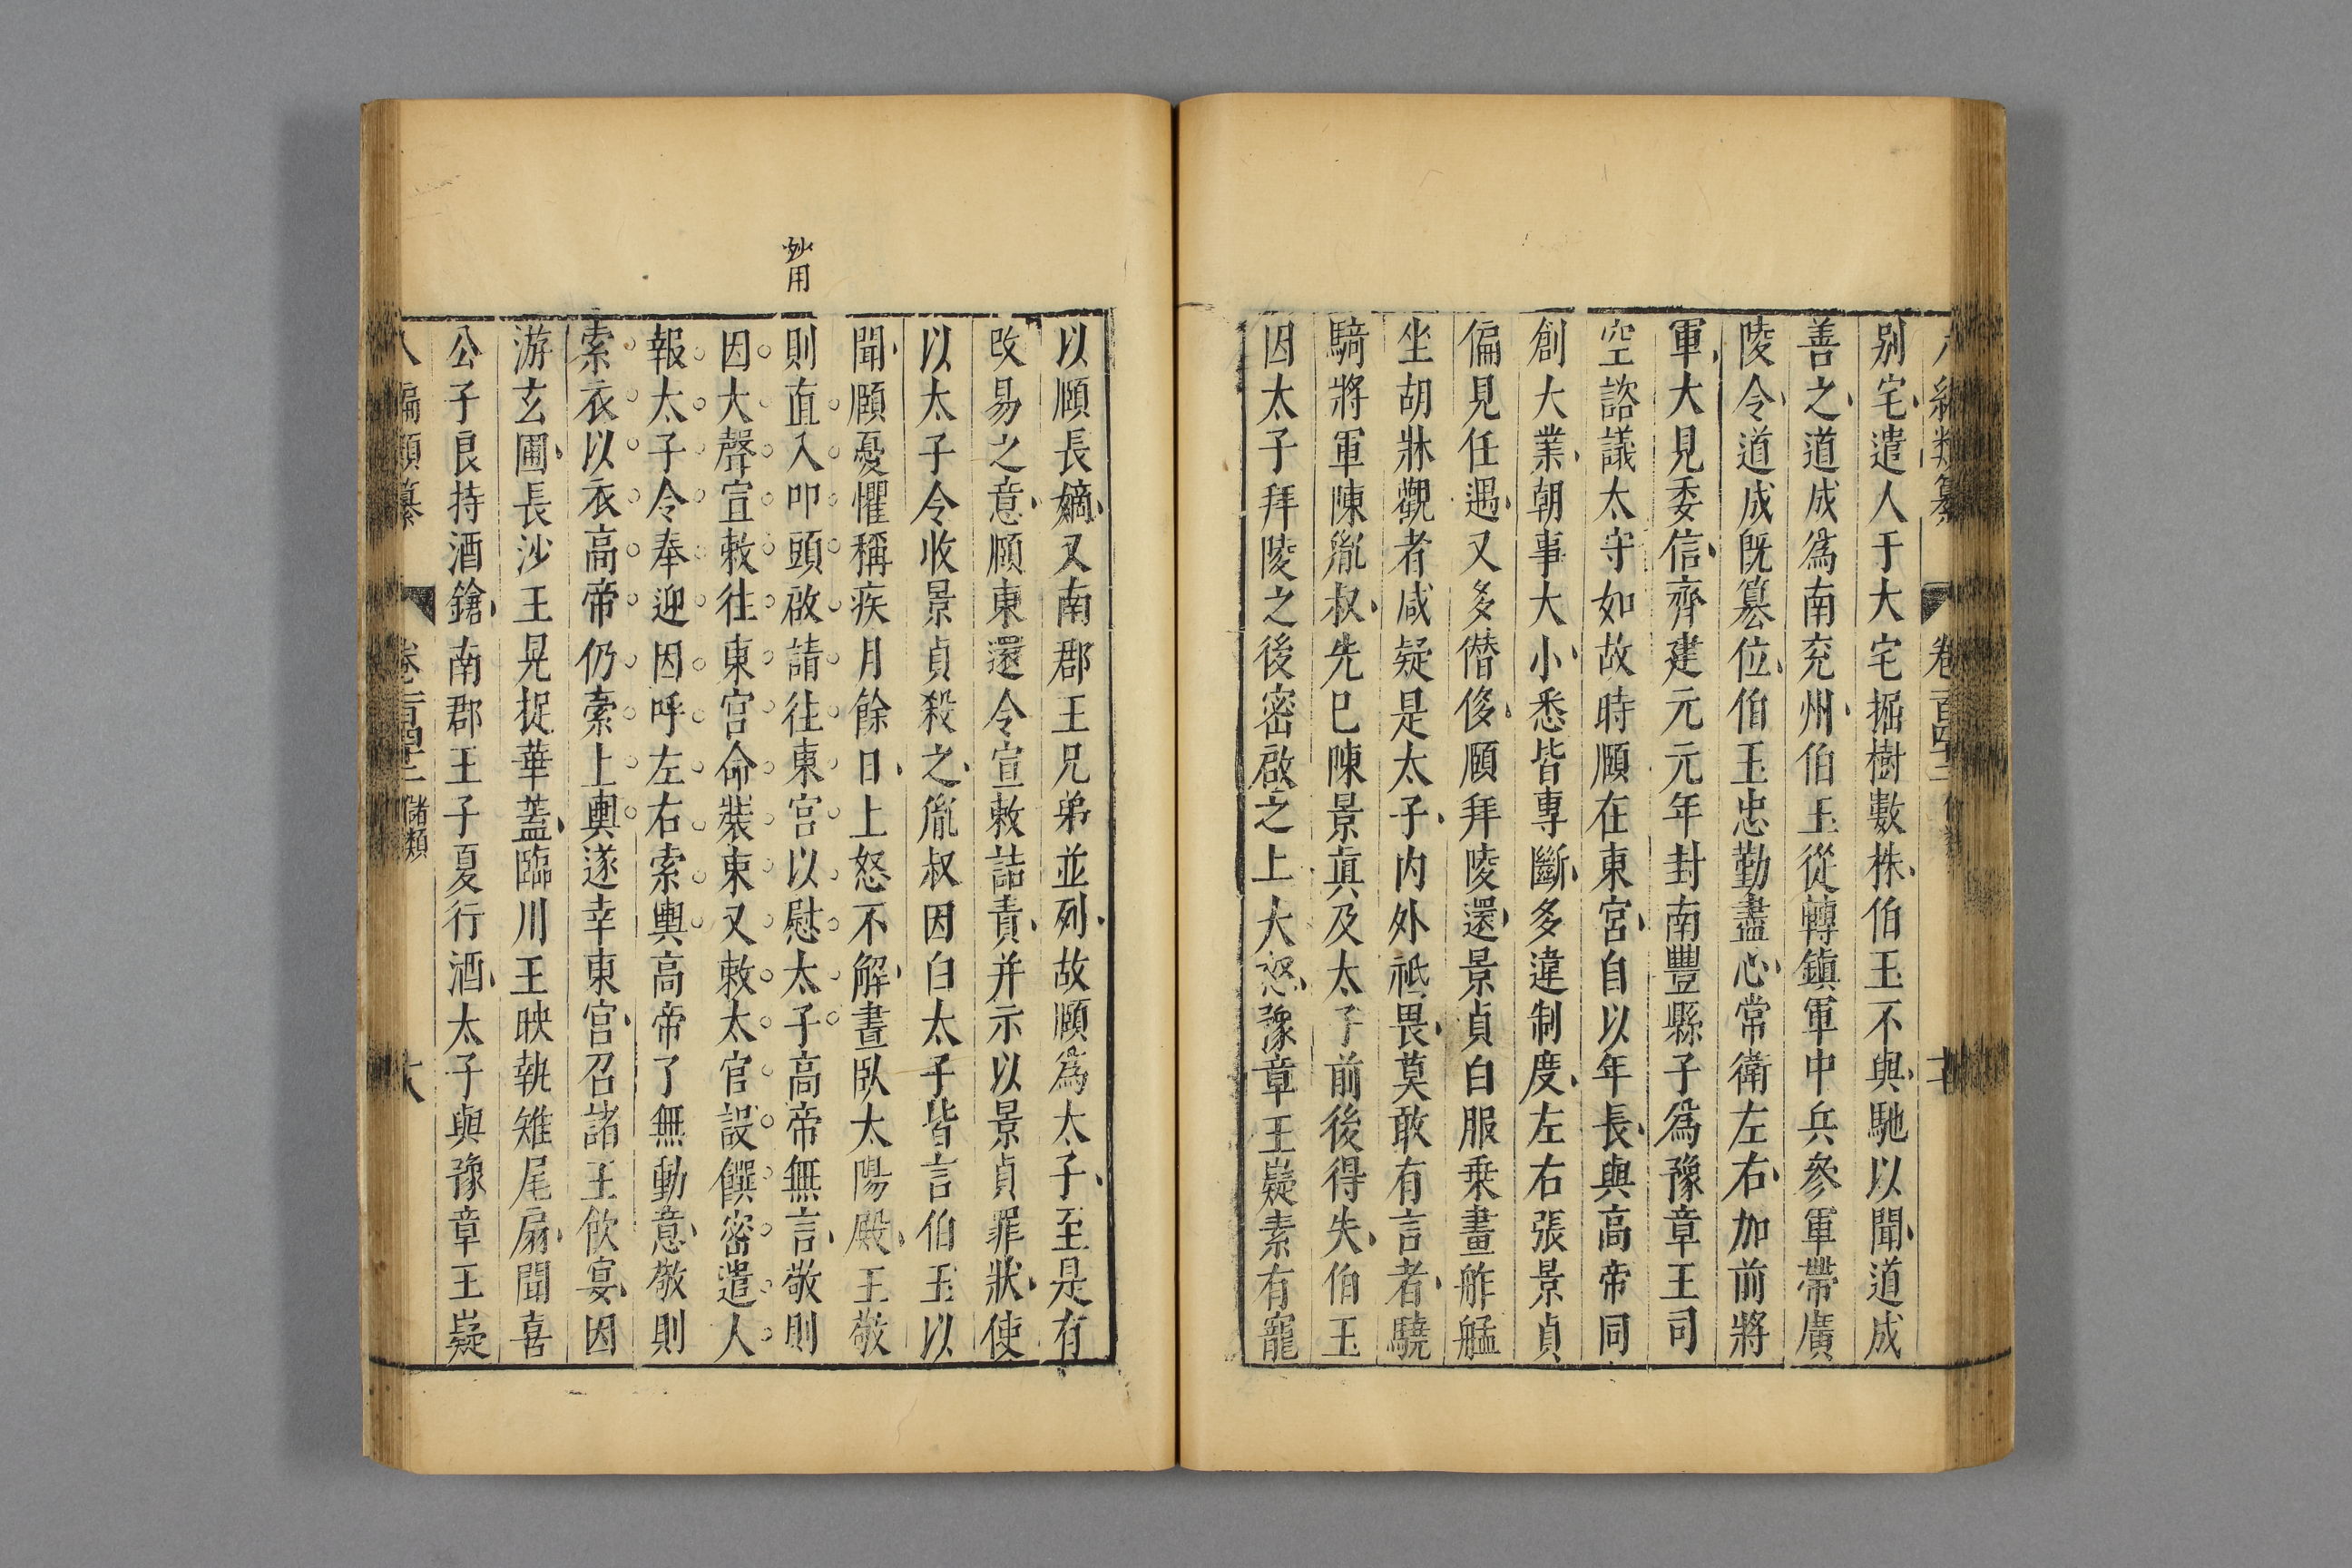 别宅遣人于大宅掘樹數株伯玉不與馳以聞道成
善之道成爲南兖州伯玉從轉鎮軍中兵參軍帶廣
陵令道成既篡位伯玉忠勤盡心常衛左右加前將
軍大見委信齊建元元年封南豐縣子爲豫章王司
空諮議太守如故時賾在東宮自以年長與高帝同
創大業朝事大小悉皆專斷多違制度左右張景貞
偏見任遇又多僭侈賾拜陵還景貞白服乗畫舴艋
坐胡牀觀者咸疑是太子内外祗畏莫敢有言者驍
騎將軍陳胤叔先巳陳景真及太子前後得失伯玉
因太子拜陵之後密啟之上大怒豫章王嶷素有寵
以賾長嫡又南郡王兄弟並列故賾爲太子至是有
改易之意賾東還令宣敕詰責并示以景貞罪狀使
以太子令收景貞殺之胤叔因白太子皆言伯玉以
聞賾憂懼稱疾月餘日上怒不解晝臥太陽殿王敬
妙用
則直入叩頭啟請往東宮以慰太子高帝無言敬則
因大聲宣敕往東宮命裝束又敕太官設饌密遣人
報太子令奉迎因呼左右索輿高帝了無動意敬則
索衣以衣高帝仍索上輿遂幸東宮召諸王飲宴因
游玄圃長沙王晃捉華蓋臨川王映執雉尾扇聞喜
公子良持酒鎗南郡王子夏行酒太子與豫章王嶷
卷 儲類